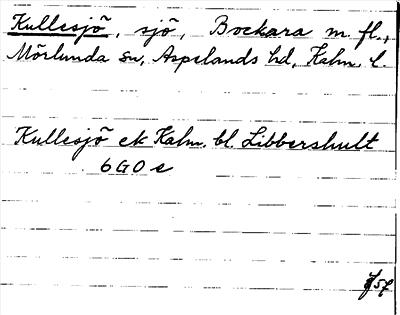 Kullesjö, sjö, Bockara m. fl.,
Mörlunda sn, Aspelands hd, Kalm. l.
Kullesjö ek Kalm. bl. Libbershult
6G0e